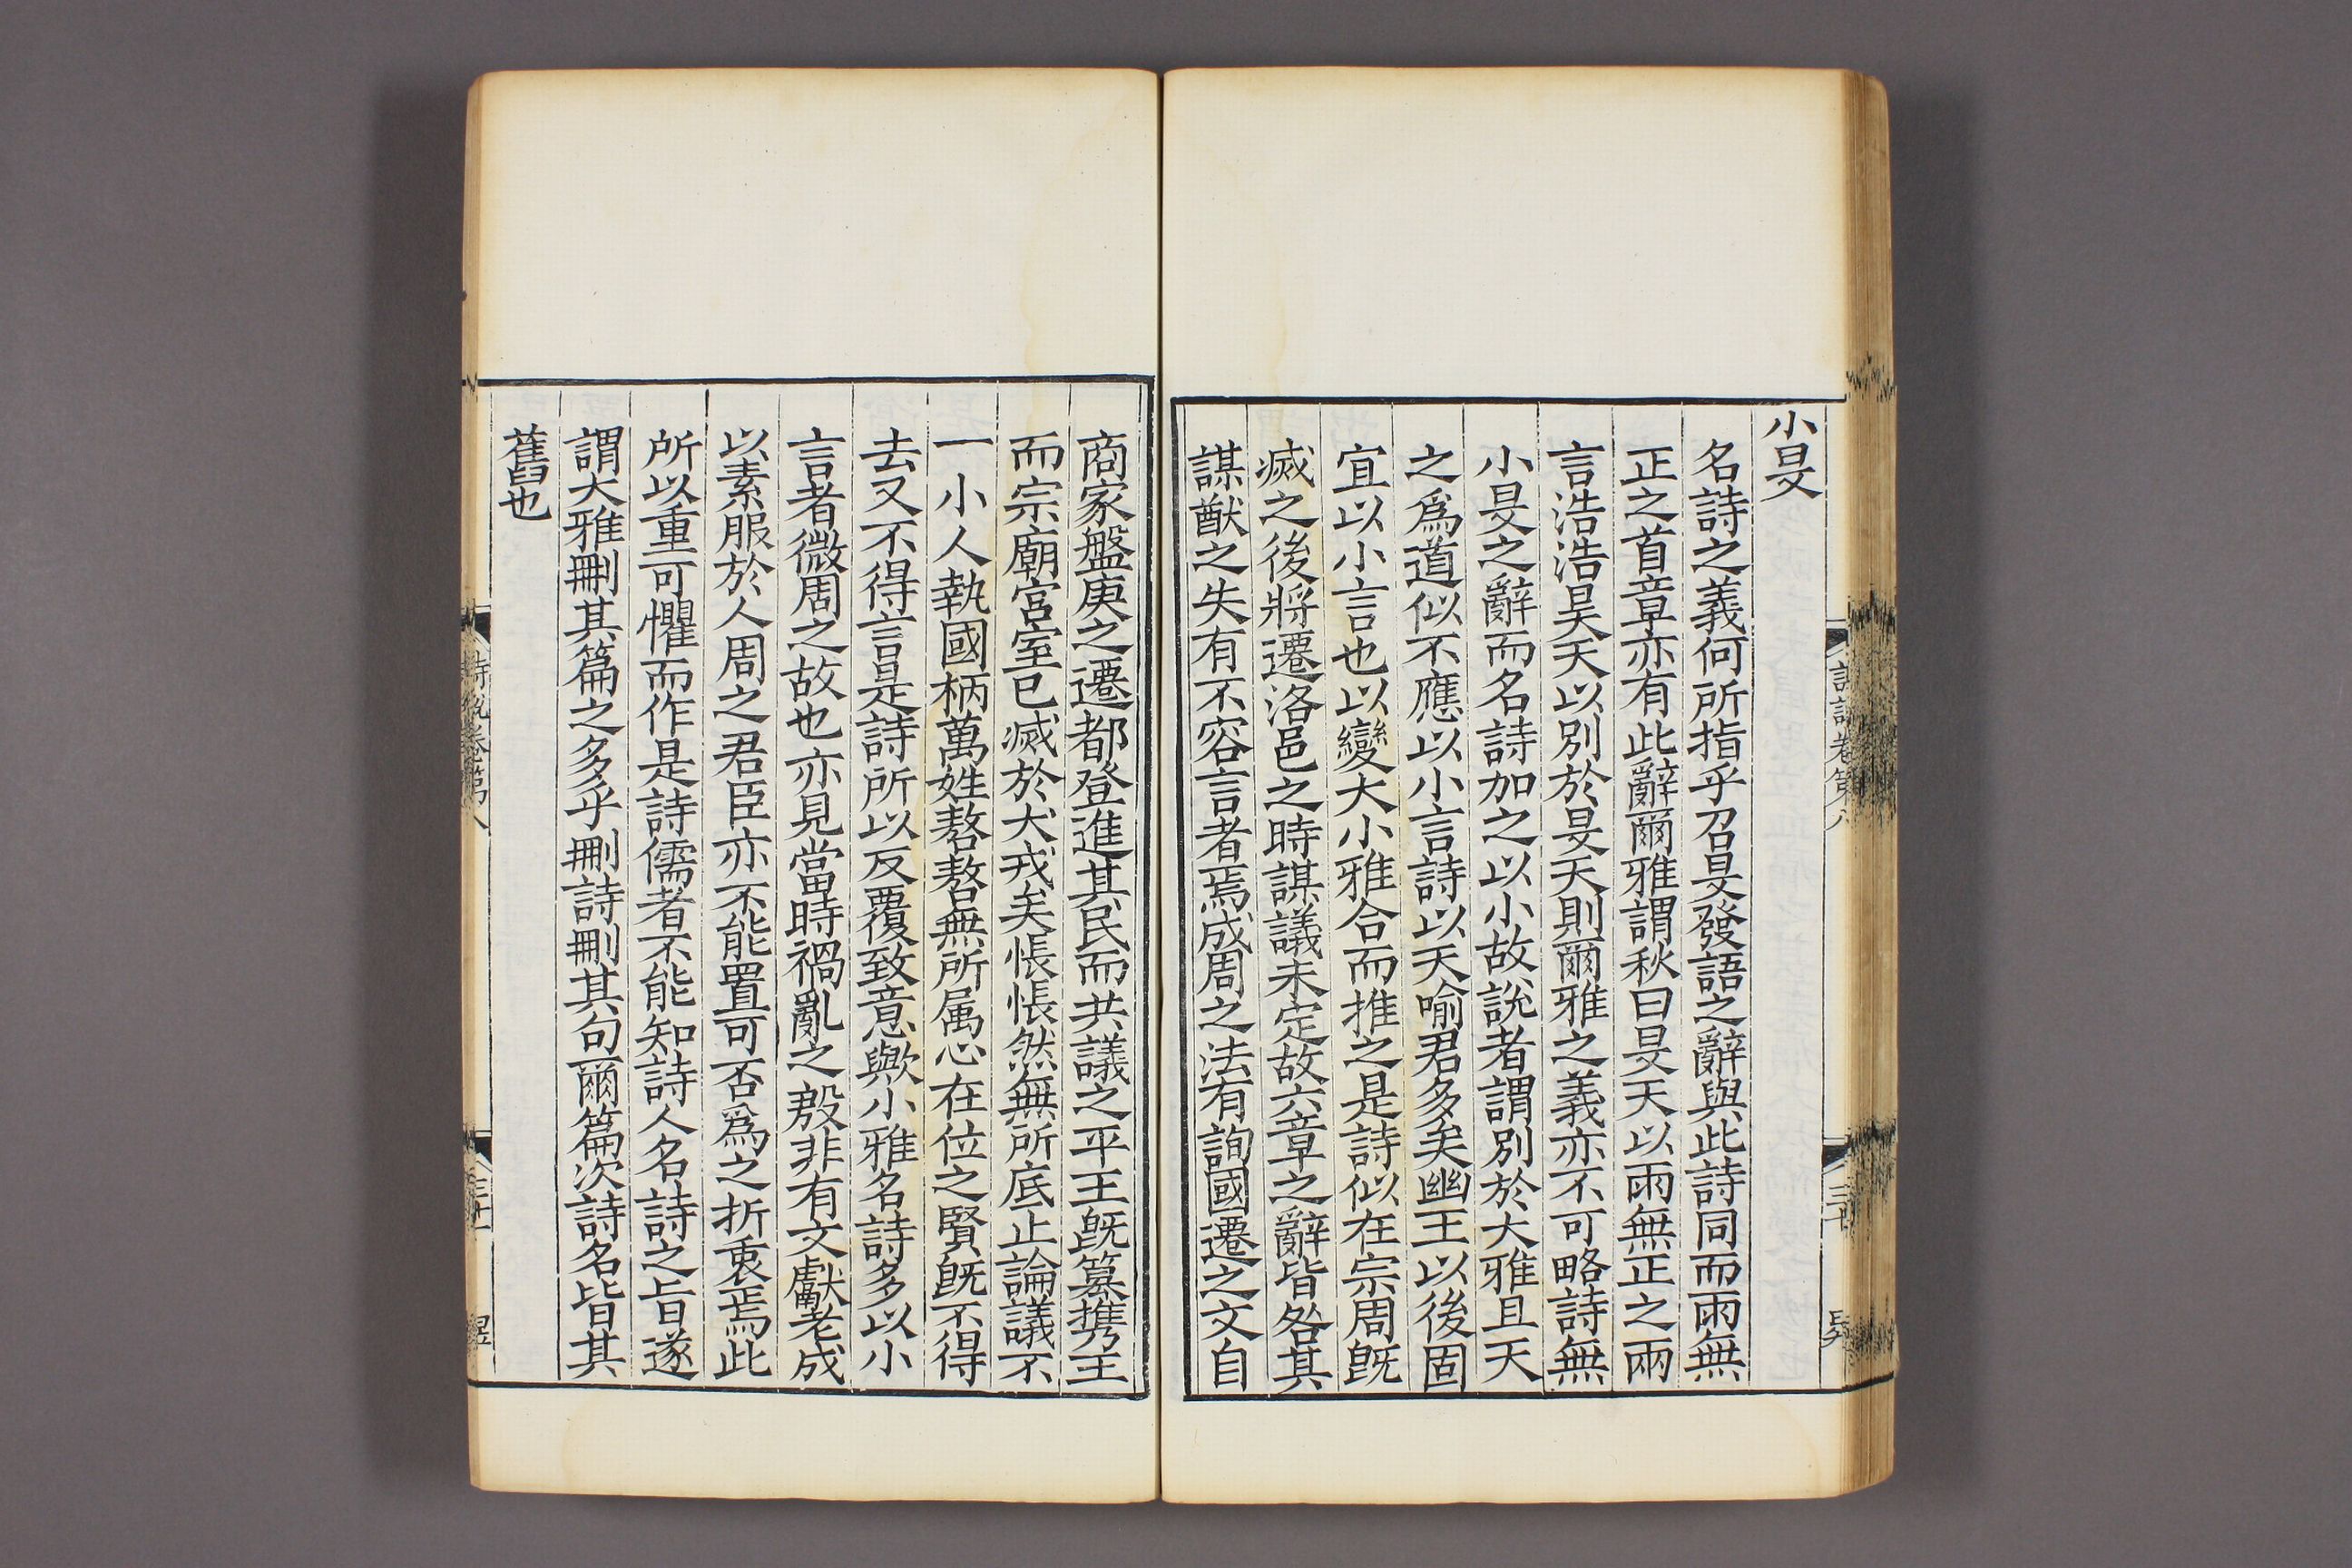 小旻
名詩之義何所指乎召旻發語之辭與此詩同而雨無
正之首章亦有此辭爾雅謂秋曰旻天以雨無正之兩
言浩浩昊天以別於旻天則爾雅之義亦不可略詩無
小旻之辭而名詩加之以小故說者謂別於大雅且天
之爲道似不應以小言詩以天喻君多矣幽王以後固
宜以小言也以變大小雅合而推之是詩似在宗周旣
滅之後將遷洛邑之時謀議未定故六章之辭皆咎其
謀猷之失有不容言者焉成周之法有詢國遷之文自
商家盤庚之遷都登進其民而共議之平王旣簒攜王
而宗廟宮室已滅於犬戎矣悵悵然無所底止論議不
一小人執國柄萬姓嗸嗸無所属心在位之賢旣不得
去又不得言是詩所以反覆致意歟小雅名詩多以小
言者微周之故也亦見當時禍亂之殷非有文獻老成
以素服於人周之君臣亦不能置可否爲之折衷焉此
所以重可懼而作是詩儒者不能知詩人名詩之旨遂
謂大雅刪其篇之多乎刪詩刪其句爾篇次詩名皆其
舊也
詩說卷第八